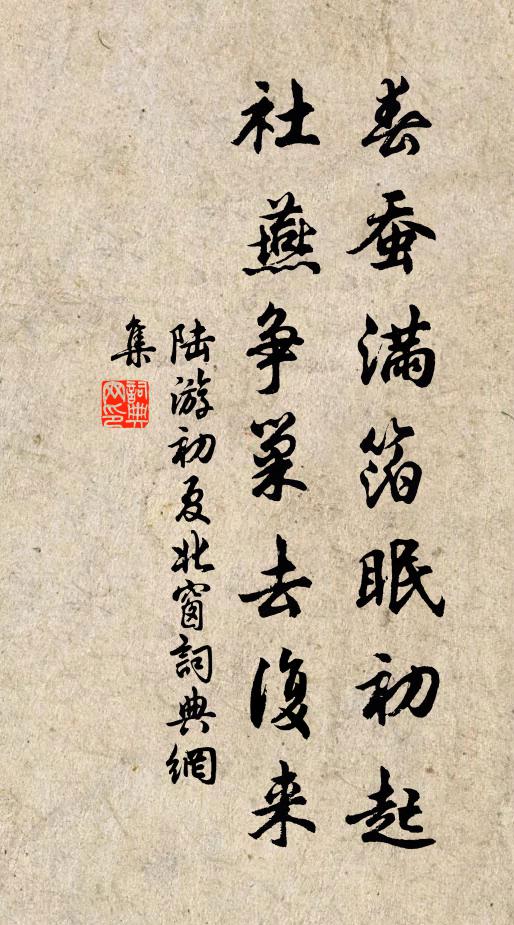 春蚕满箔眠初起
社燕争巢去復来
陆游初夏北窗詞典網
集
詞典网印